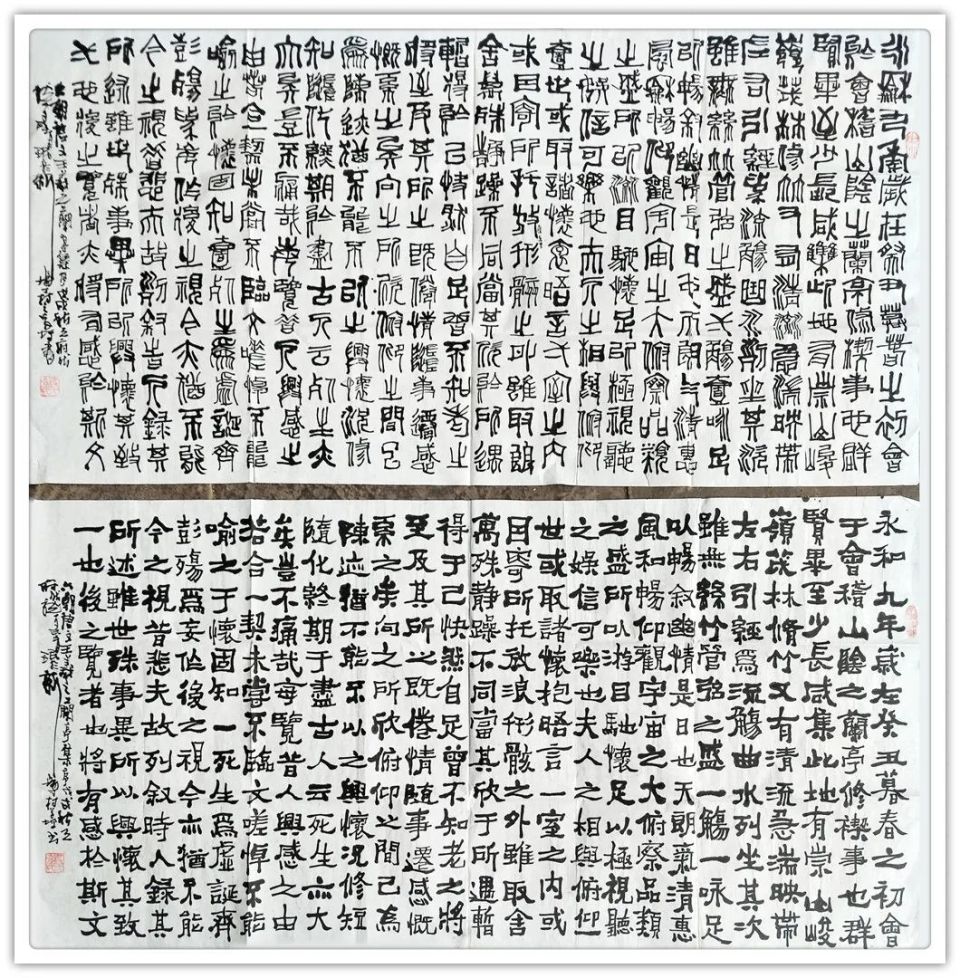 永和九年歲在癸丑暮春之初會
於會稽山陰之蘭亭修禊事也群
賢畢至少長咸集此地有崇山峻
嶺茂林修竹又有清流急湍映帶
左右引以爲流觴曲水列坐其次
雖無絲竹管弦之盛一觴一詠足
以暢敘幽情是日也天朗氣清惠
風和暢仰觀宇宙之大俯察品類
之盛所以游目騁懷足以極視聽
之娛信可樂也夫人之相與俯仰
一世或取諸懷抱晤言一室之內
或因寄所托放浪形骸之外雖取
舍萬殊靜躁不同當其欣於所遇
暫得於己快然自足曾不知老之
將至及其所之既倦情隨事遷感
慨系之矣向之所欣俯仰之間已
爲陳迹猶不能不以之興懷況修
短隨化終期於盡古人云死生亦
大矣豈不痛哉每覽昔人興感之
由若合一契未嘗不臨文嗟悼不能
喻之於懷固知一死生爲虛誕齊
彭殤爲妄作後之視今亦猶不能
今之視昔悲夫故列敘時人錄其
所述雖世殊事異所以興懷其致
一也後之覽者亦將有感於斯文
永和九年歲在癸丑暮春之初會
于會稽山陰之蘭亭修禊事也群
賢畢至少長咸集此地有崇山峻
嶺茂林脩竹又有清流急湍映帶
左右引經爲流觴曲水列坐其次
雖無絲竹管弦之盛一觴一咏足
以暢叙幽情是日也天朗氣清惠
風和暢仰觀宇宙之大俯察品類
之盛所以游目馳懷足以極視聽
之娛信可樂也夫人之相與俯仰
世或取諸懷抱晤言一室之内或
因寄所托放浪形骸之外雖取舍
萬殊静躁不同當其欣于所遇暫
得于己快然自足曾不知老之將
至及其所之既倦情隨事遷感慨
系之矣向之所欣俯仰之間已為
陳迹猶不能不以之興懷況修短
隨化終期于盡古人云死生亦大
矣豈不痛哉每覽昔人興感之由
若合一契未嘗不臨文嗟悼不能
喻之于懷固知一死生爲虛誕齊
彭殤爲妄作後之視今亦猶不能
今之視昔悲夫故列叙時人録其
所述雖世殊事異所以興懷其致
一也後之覽者也將有感於斯文